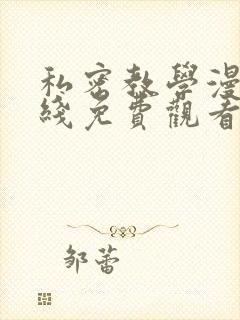 私密教學漫
綫免費觀看
邹蕾